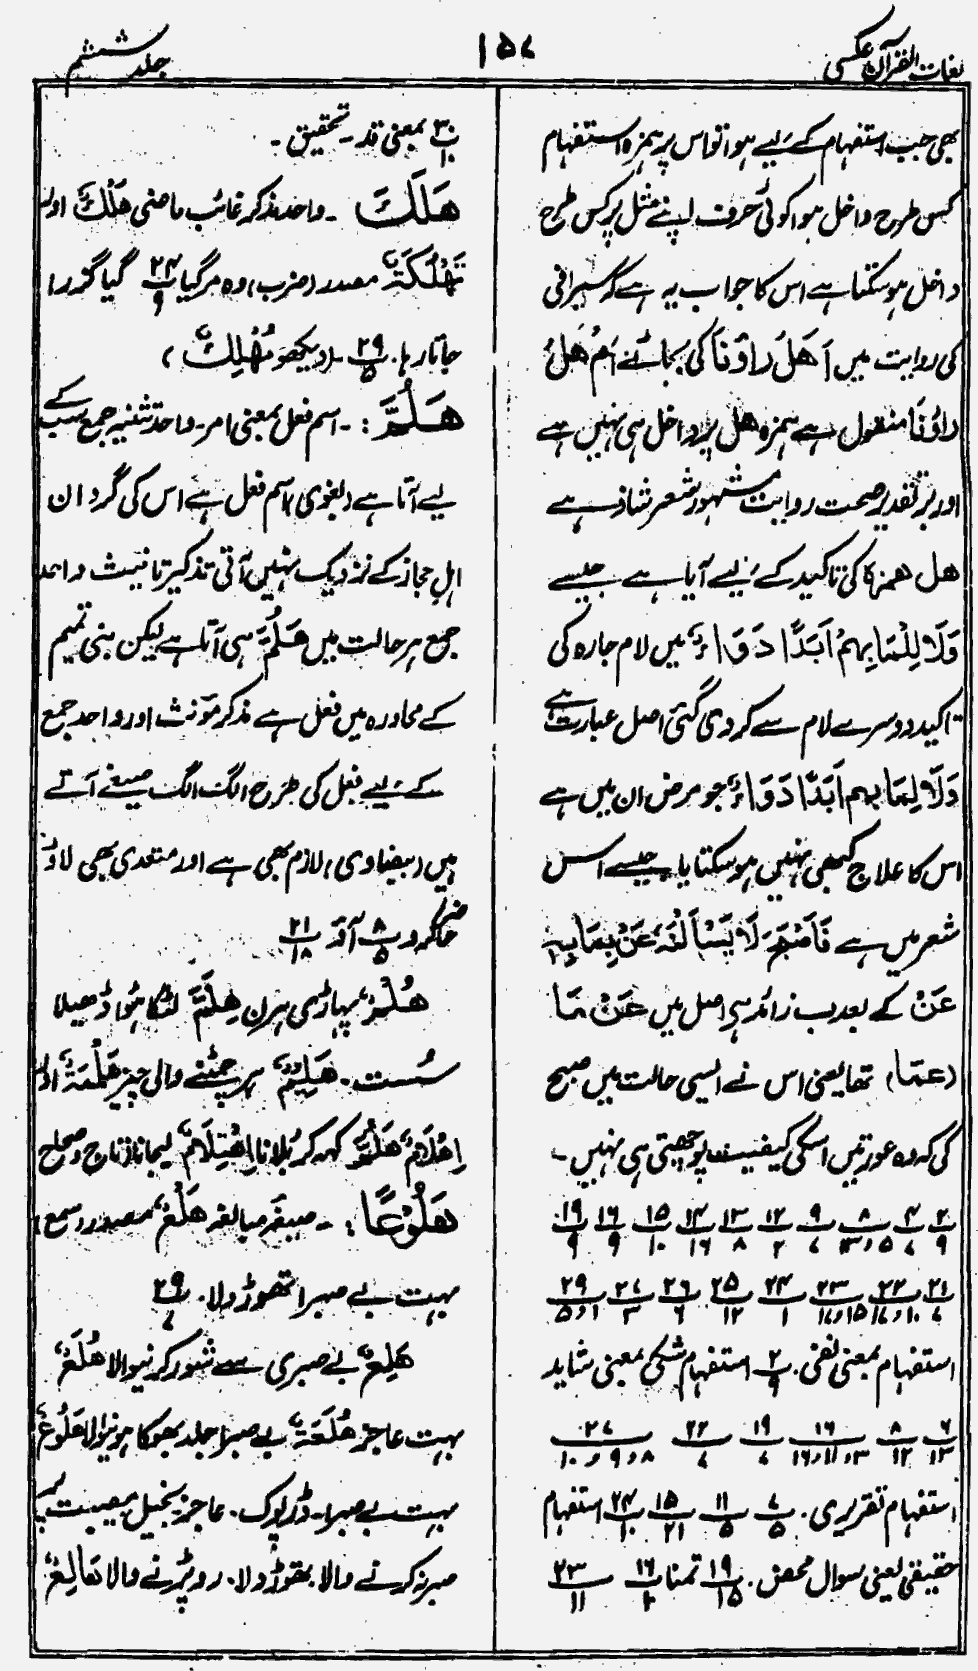 لغات القرآن عکسی
۱۵۷
جلد ششم
بھی جب استفہام کے لیے ہوا تو اس پر ہمزہ استفہام
کس طرح داخل ہوا کوئی حرف اپنے مثل پر کس طرح
داخل ہو سکتا ہے اس کا جواب یہ ہے کہ سیرافی
کی روایت میں اَھَلْ رَاَوْنَا کی بجائے اَمْ ھَلْ
رَاَوْنَا منقول ہے ہمزہ ھل پر داخل ہی نہیں ہے
اور بر تقدیر صحت روایت مشہور شعر شاذ ہے
ھل ھمزہ کی تاکید کے لیے آیا ہے جیسے
وَلَا لِلْمَا بِہِمْ اَبَدًا دَوَاءٌ میں لام جارہ کی
تاکید دوسرے لام سے کر دی گئی اصل عبارت ہے
وَلَا لِمَا بِہِم اَبَدًا دَوَاءٌ جو مرض ان میں ہے
اس کا علاج کبھی نہیں ہو سکتا یا جیسے اس
شعر میں ہے فَاَصْبَحَ لَا يَسْاَلْنَهٗ عَنْ بِمَا بِہٖ
عَنْ کے بعد ب زائد ہے اصل میں عَنْ مَا
(عمّا) تھا یعنی اس نے ایسی حالت میں صبح
کی کہ وہ عورتیں اسکی کیفیت پوچھتی ہی نہیں ۔
۲/۹ ۴/۷ ۸/۵و۱۳ ۹/۷ ۱۲/۲ ۱۳/۸ ۱۴/۱۶ ۱۵/۱۰ ۱۶/۹ ۱۹/۹
۲۱/۷ ۲۲/۱۰و۱۷ ۲۳/۱۵و۱۷ ۲۴/۱ ۲۵/۱۲ ۲۶/۶ ۲۷/۳ ۲۹/۱و۵
استفہام بمعنی نفی. ۲/۹ استفہام شکی بمعنی شاید
۶/۱۳ ۸/۱۲ ۱۶/۱۳و۱۱و۱۶ ۱۹/۷ ۲۲/۷ ۲۷/۸و۹و۱۰
استفہام تقریری. ۷/۵ ۱۱/۵ ۱۵/۲۱ ۲۴/۱۰ استفہام
حقیقی یعنی سوال محض. ۱۹/۱۵ تمنا ۱۶/۲ ۲۳/۱۱
۳۰/۱۰ بمعنی قد ۔ تحقیق ۔
ھَلَكَ ۔ واحد مذکر غائب ماضی ھَلْكٌ اور
تَهْلُكَةٌ مصدر (ضرب) وہ مر گیا ۲۴/۹ گیا گزرا
جاتا رہا. ۲۹/۵ ۔ (دیکھو مُهْلِكٌ)
ھَلُمَّ : ۔ اسم فعل بمعنی امر ۔ واحد تثنیہ جمع سب کے
لیے آتا ہے (بغوی) اسم فعل ہے اس کی گردان
اہل حجاز کے نزدیک نہیں آتی تذکیر تانیث واحد
جمع ہر حالت میں ھَلُمَّ ہی آتا ہے لیکن بنی تمیم
کے محاورہ میں فعل ہے مذکر مؤنث اور واحد جمع
کے لیے فعل کی طرح الگ الگ صیغے آتے
ہیں (بیضاوی) لازم بھی ہے اور متعدی بھی لاؤ
حاضر کرو ۸/۵ آؤ ۲۱/۱۸
ھُلُمٌ پہاڑی ہرن ھِلَمٌّ لٹکا ہوا ڈھیلا
سُست ۔ ھَلِيْمٌ ہر چمٹنے والی چیز ھَلْمَةٌ اور
اِهْلَامٌ ھَلُمَّ کہہ کر بُلانا اِهْتِلَامٌ لیجانا (تاج و صحاح)
ھَلُوْعًا : ۔ صیغہ مبالغہ ھَلْعٌ مصدر (سمع)
بہت بے صبرا تھوڑ دلا ۔ ۲۹/۷
ھَلِعٌ بے صبری سے شور کرنیوالا ھُلَعٌ
بہت عاجز ھُلَعَةٌ بے صبرا جلد بھوکا ہونیوالا ھَلُوْعٌ
بہت بے صبرا ۔ ڈرپوک ۔ عاجز بخیل مصیبت پر
صبر نہ کرنے والا تھوڑ دلا ۔ رو پڑنے والا ھَالِعٌ